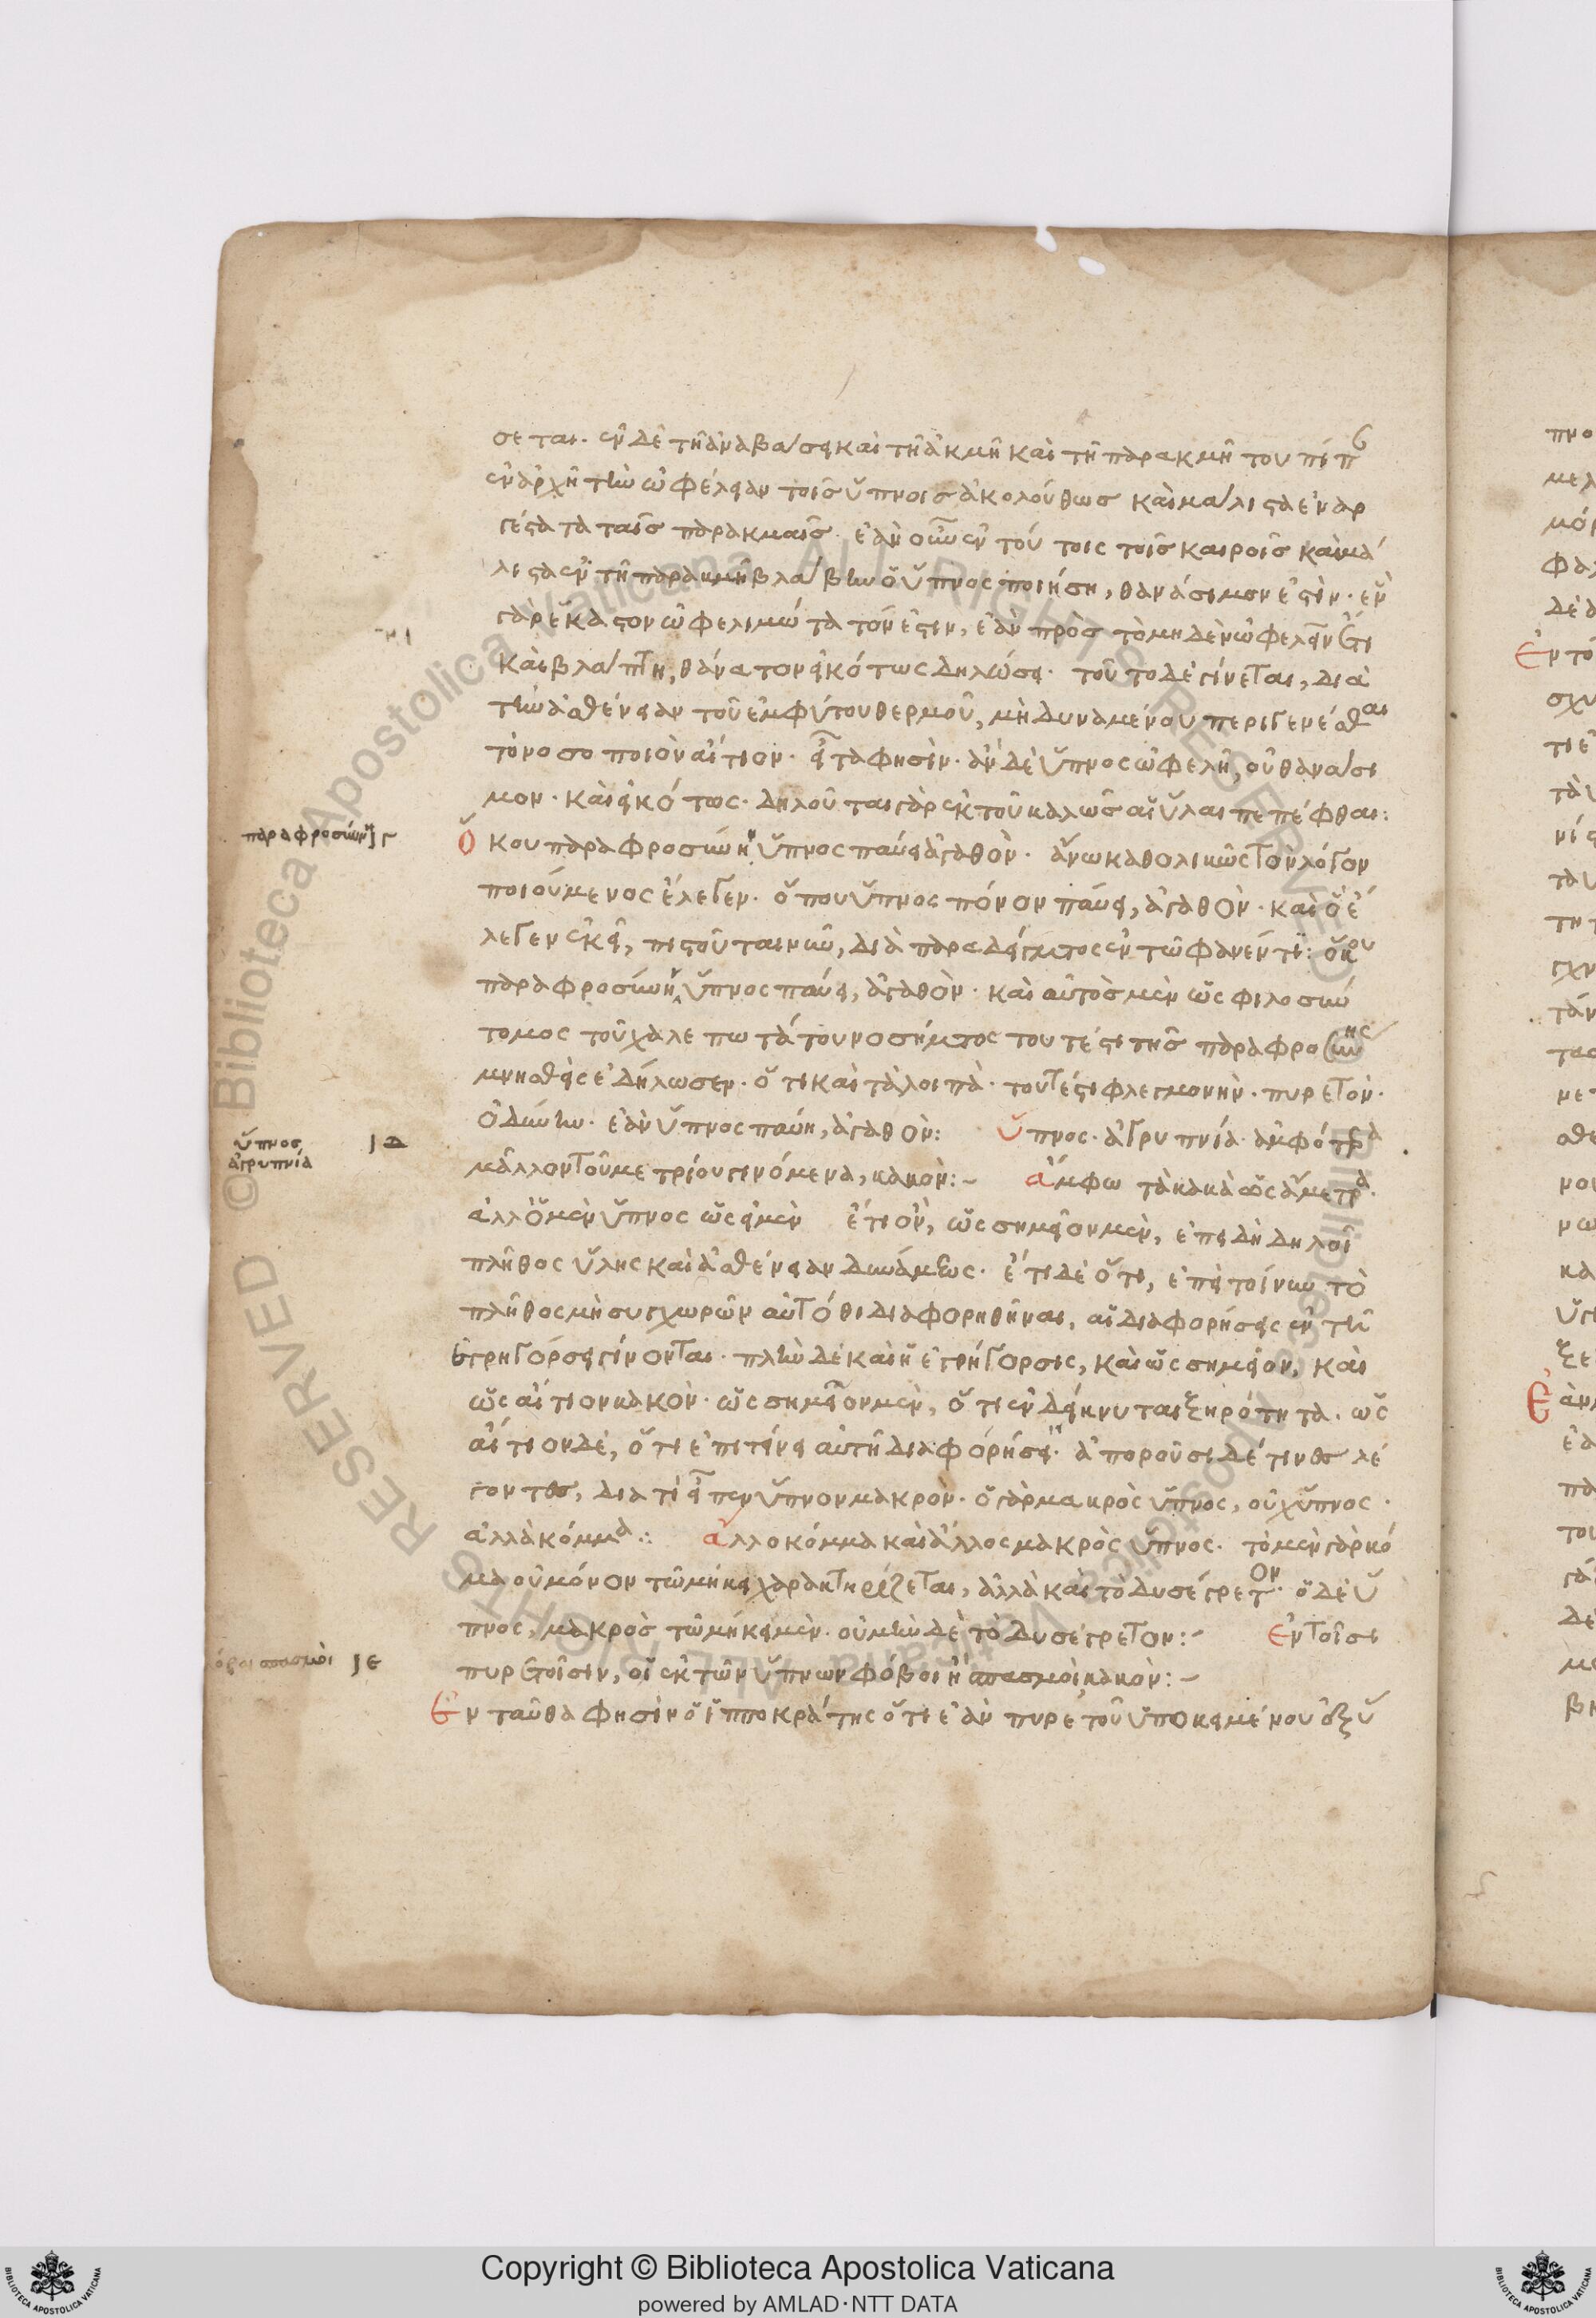 σεται. ἐν δὲ τῆ ἀναβάσει καὶ τῆ ἀκμῆ καὶ τῆ παρακμῆ του
ἐν ἀρχῆ τὴν ὠφέλειαν τοῖς ὕπνοις ἀκολούθως καὶ μάλιστα ἐναρ
γέστατα ταῖς παρακμαῖς. ἐὰν οὖν ἐν τούτοις τοῖς καιροῖς καὶ μά
λιστα ἐν τῆ παρακμῆ βλάβην ὁ ὕπνος ποιήση, θανάσιμον ἐστὶν· ἐν
γὰρ ἕκαστον ὠφελιμώτατόν ἐστιν, ἐὰν πρὸς τὸ μηδὲν ὠφελεῖν ἔτι
καὶ βλάπτη, θάνατον εἰκότως δηλώσει· τοῦτο δὲ γίνεται, διὰ
τὴν ἀσθένειαν τοῦ ἐμφύτου θερμοῦ, μὴ δυναμένου περιγενέσθαι
τὸ νοσοποιὸν αἴτιον· εἶτα φησὶν· ἂν δὲ ὕπνος ὠφελῆ, οὐ θανάσι
μον· καὶ εἰκότως· δηλοῦται γὰρ ἐκ τοῦ καλῶς αἱ ὗλαι πεπέφθαι:
παραφροσύνην ιγ
Ὅκου παραφροσύνην ὕπνος παύει ἀγαθὸν· ἄνω καθολικῶς τὸν λόγον
ποιούμενος ἔλεγεν· ὅπου ὕπνος πόνον παύει, ἀγαθὸν· καὶ ὃ ἔ
λεγεν ἐκεῖ, πιστοῦται νῦν, διὰ παραδείγματος ἐν τῶ φανέντι· ὅκου
παραφροσύνην ὕπνος παύει, ἀγαθὸν· καὶ αὐτὸς μὲν ὡς φιλοσύν
τομος τοῦ χαλεπωτάτου νοσήματος τουτέστι τῆς παραφροσύνης
μνησθεὶς ἐδήλωσεν· ὅτι καὶ τὰ λοιπὰ· τουτέστι φλεγμονὴν· πυρετὸν·
ὀδύνην· ἐὰν ὕπνος παύη, ἀγαθὸν: ὕπνος· ἀγρυπνία· ἀμφότερα
ὕπνος
ἀγρυπνία ιδ
μᾶλλον τοῦ μετρίου γινόμενα, κακὸν:- ἄμφω τὰ κακὰ ὡς ἄμετρα·
ἀλλ' ὁ μὲν ὕπνος ὡς εἰμὲν ἔτι ὂν, ὡς σημεῖον μὲν, ἐπειδὴ δηλοῖ
πλῆθος ὕλης καὶ ἀσθένειαν δυνάμεως· ἔτι δὲ ὅτι, ἐπεὶ τοίνυν τὸ
πλῆθος μὴ συγχωρῶν αὐτόθι διαφορηθῆναι, αἱ διαφορήσεις ἐν τῆ
ἐγρηγόρσει γίνονται· πλὴν δὲ καὶ ἡ ἐγρήγορσις, καὶ ὡς σημεῖον, καὶ
ὡς αἴτιον κακὸν· ὡς σημεῖον μὲν, ὅτι ἐνδείκνυται ξηρότητα· ὡς
αἴτιον δὲ, ὅτι ἐπιτείνει αὐτῆ διαφόρησει· ἀποροῦσι δέ τινες λέ
γοντες, διατί εἶπεν ὕπνον μακρὸν· ὁ γὰρ μακρὸς ὕπνος, οὐχ ὕπνος·
ἀλλὰ κόμμα:: ἄλλο κόμμα καὶ ἄλλος μακρὸς ὕπνος· τὸ μὲν γὰρ κό
μα οὐ μόνον τῶ μήκει χαρακτηρίζεται, ἀλλὰ καὶ τὸ δυσέγρετον· ὁ δὲ ὕ
πνος, μακρὸς τῶ μήκει μὲν· οὐ μὴν δὲ τὸ δυσέγρετον:- ἐν τοῖσι
σπασμοὶ ιε
πυρετοῖσιν, οἱ ἐκ τῶν ὕπνων φόβοι ἢ σπασμοὶ, κακὸν:-
Ἐνταῦθα φησὶν ὁ ἱπποκράτης ὅτι ἐὰν πυρετοῦ ὑποκειμένου ὀξὺ
Copyright © Biblioteca Apostolica Vaticana
powered by AMLAD·NTT DATA